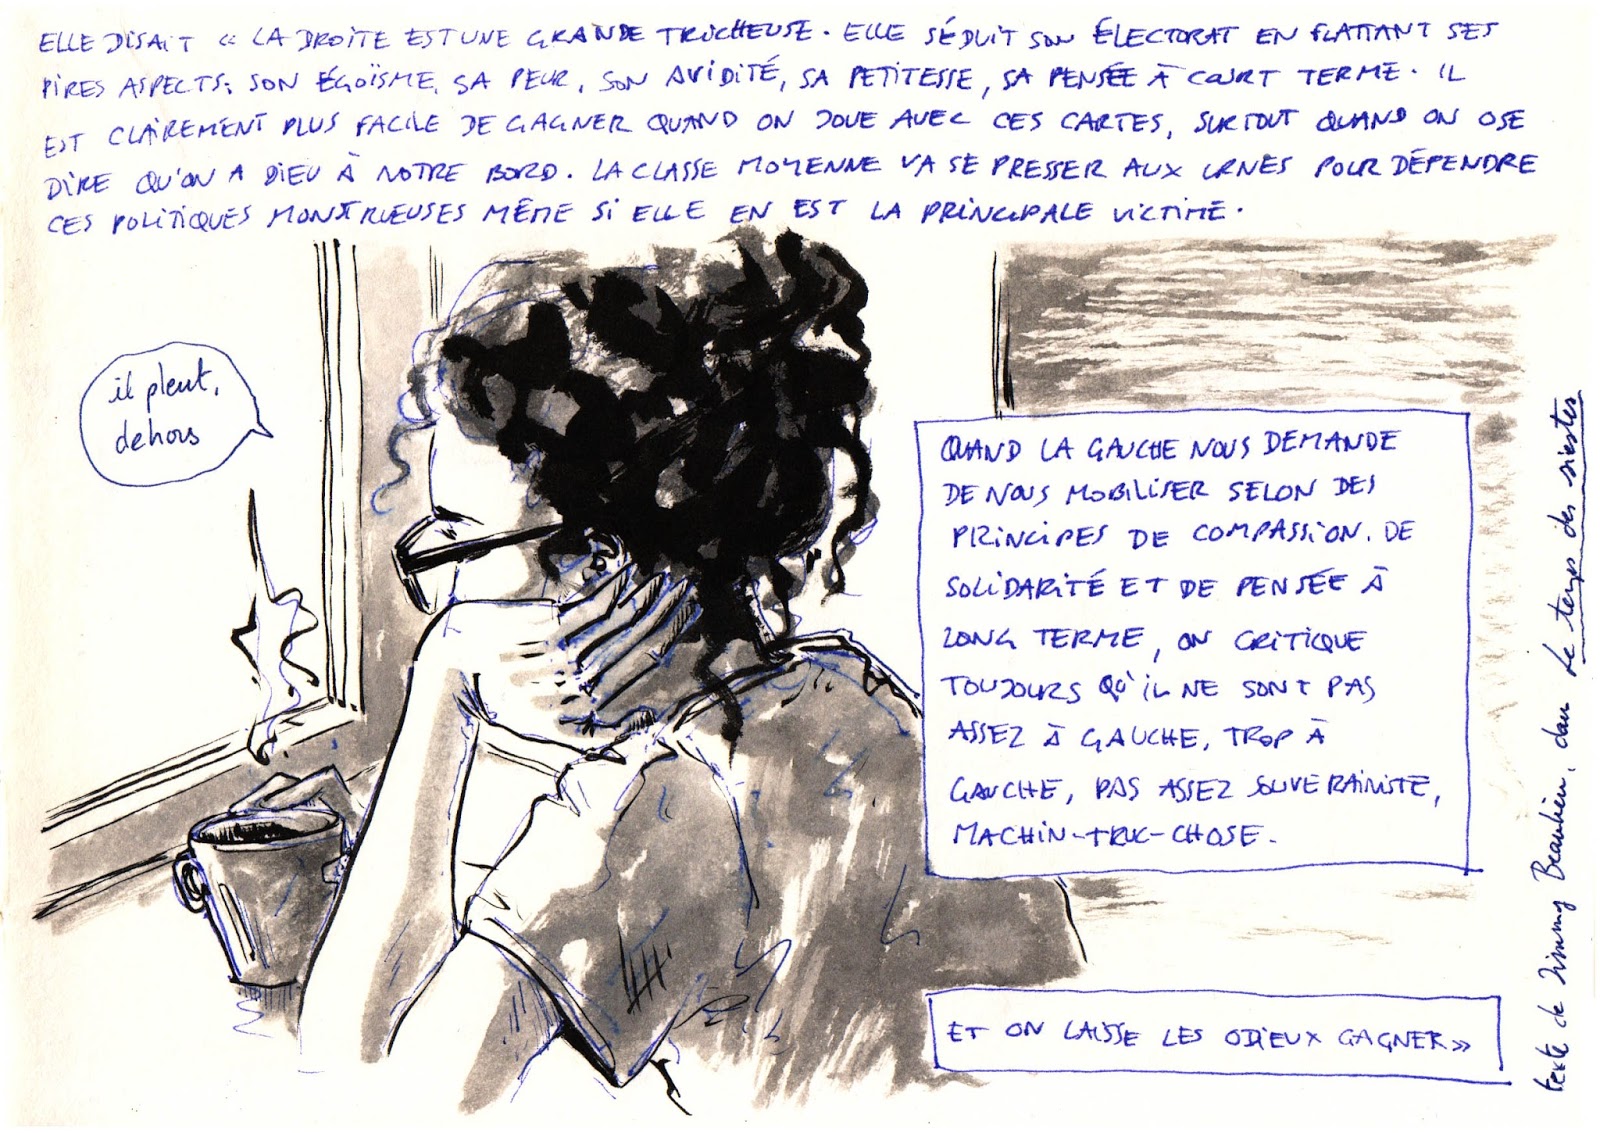 ELLE DISAIT « LA DROITE EST UNE GRANDE TRICHEUSE. ELLE SÉDUIT SON ÉLECTORAT EN FLATTANT SES
PIRES ASPECTS; SON ÉGOÏSME, SA PEUR, SON AVIDITÉ, SA PETITESSE, SA PENSÉE À COURT TERME. IL
EST CLAIREMENT PLUS FACILE DE GAGNER QUAND ON JOUE AVEC CES CARTES, SURTOUT QUAND ON OSE
DIRE QU'ON A DIEU À NOTRE BORD. LA CLASSE MOYENNE VA SE PRESSER AUX URNES POUR DÉFENDRE
CES POLITIQUES MONSTRUEUSES MÊME SI ELLE EN EST LA PRINCIPALE VICTIME.
il pleut,
dehors
QUAND LA GAUCHE NOUS DEMANDE
DE NOUS MOBILISER SELON DES
PRINCIPES DE COMPASSION, DE
SOLIDARITÉ ET DE PENSÉE À
LONG TERME, ON CRITIQUE
TOUJOURS QU'IL NE SONT PAS
ASSEZ À GAUCHE, TROP À
GAUCHE, PAS ASSEZ SOUVERAINISTE,
MACHIN-TRUC-CHOSE.
ET ON LAISSE LES ODIEUX GAGNER »
texte de Jimmy Beaulieu, dans Le temps des siestes